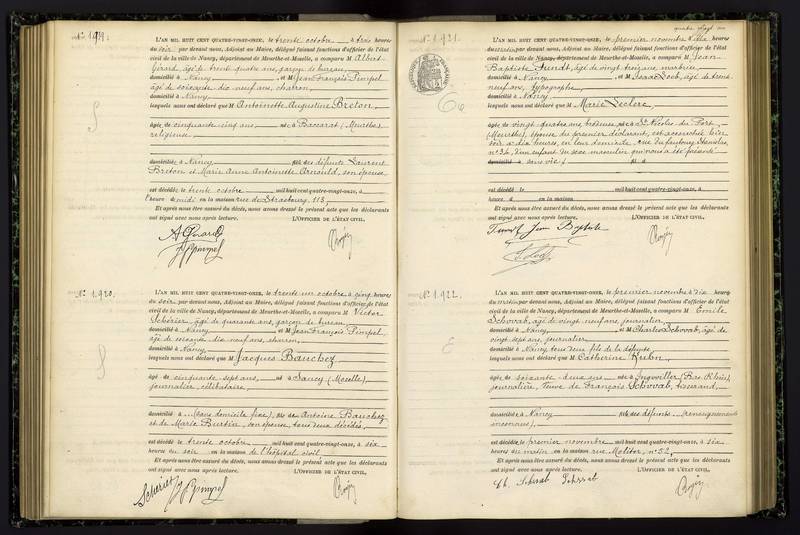 N° 1919.
L'AN MIL HUIT CENT QUATRE-VINGT-ONZE, le trente octobre à trois heures
du soir par devant nous, Adjoint au Maire, délégué faisant fonctions d'officier de l'état
civil de la ville de Nancy, département de Meurthe-et-Moselle, a comparu M Albert
Girard, âgé de trente quatre ans, garçon de bureau,
domicilié à Nancy et M Jean François Pimpel
âgé de soixante dix neuf ans, charron,
domicilié à Nancy
lesquels nous ont déclaré que M Antoinette Augustine Breton,
âgée de cinquante cinq ans, née à Baccarat (Meurthe)
religieuse
domiciliée à Nancy fille des défunts Laurent
Breton et Marie Anne Antoinette Arnould, son épouse
est décédée le trente octobre mil huit cent quatre-vingt-onze, à
l'heure de midi en la maison rue de Strasbourg, 113,
Et après nous être assuré du décès, nous avons dressé le présent acte que les déclarants
ont signé avec nous après lecture. L'OFFICIER DE L'ÉTAT CIVIL,
A Girard
JF Pimpel
N° 1920.
L'AN MIL HUIT CENT QUATRE-VINGT-ONZE, le trente un octobre à cinq heures
du soir, par devant nous, Adjoint au Maire, délégué faisant fonctions d'officier de l'état
civil de la ville de Nancy, département de Meurthe-et-Moselle, a comparu M Victor
Schérier, âgé de quarante ans, garçon de bureau
domicilié à Nancy et M Jean François Pimpel,
âgé de soixante dix neuf ans, charron,
domicilié à Nancy
lesquels nous ont déclaré que M Jacques Bauchez
âgé de cinquante sept ans, né à Sancy (Moselle),
journalier, célibataire,
domicilié à (sans domicile fixe), fils de Antoine Bauchez
et de Marie Burtin, son épouse, tous deux décédés,
est décédé le trente octobre mil huit cent quatre-vingt-onze, à six
heures du soir en la maison de l'hôpital civil,
Et après nous être assuré du décès, nous avons dressé le présent acte que les déclarants
ont signé avec nous après lecture. L'OFFICIER DE L'ÉTAT CIVIL,
Scherier JF Pimpel
quatre vingt un
N° 1921.
L'AN MIL HUIT CENT QUATRE-VINGT-ONZE, le premier novembre à dix heures
du matin par devant nous, Adjoint au Maire, délégué faisant fonctions d'officier de l'état
civil de la ville de Nancy, département de Meurthe-et-Moselle, a comparu M Jean
Baptiste âgé de vingt trois ans, marbrier
domicilié à Nancy et M Isaac Loeb, âgé de trente
neuf ans, typographe
domicilié à Nancy
lesquels nous ont déclaré que M Marie Leclerc,
âgée de vingt quatre ans, brodeuse née à St Nicolas du Port,
(Meurthe), épouse du premier déclarant, est accouchée hier
soir à dix heures, en leur domicile, rue du faubourg Stanislas,
n° 34, d'un enfant du sexe masculin qui nous a été présenté
domicilié à sans vie,
est décédé le mil huit cent quatre-vingt-onze, à
heure d en la maison
Et après nous être assuré du décès, nous avons dressé le présent acte que les déclarants
ont signé avec nous après lecture. L'OFFICIER DE L'ÉTAT CIVIL,
Jean Baptiste
N° 1922.
L'AN MIL HUIT CENT QUATRE-VINGT-ONZE, le premier novembre à dix heures
du matin par devant nous, Adjoint au Maire, délégué faisant fonctions d'officier de l'état
civil de la ville de Nancy, département de Meurthe-et-Moselle, a comparu M Emile
Schvvab, âgé de vingt neuf ans, journalier
domicilié à Nancy et M Charles Schvvab, âgé de
vingt sept ans, journalier
domicilié à Nancy tous deux fils de la défunte
lesquels nous ont déclaré que M Catherine Kuhn,
âgée de soixante deux ans née à Ingwiller (Bas-Rhin),
journalière, veuve de François Schvvab, tisserand,
domiciliée à Nancy fille des défunts (renseignements
inconnus),
est décédée le premier novembre mil huit cent quatre-vingt-onze, à six
heures du matin en la maison rue Molitor, n° 52,
Et après nous être assuré du décès, nous avons dressé le présent acte que les déclarants
ont signé avec nous après lecture. L'OFFICIER DE L'ÉTAT CIVIL,
Ch. Schvab Schvab